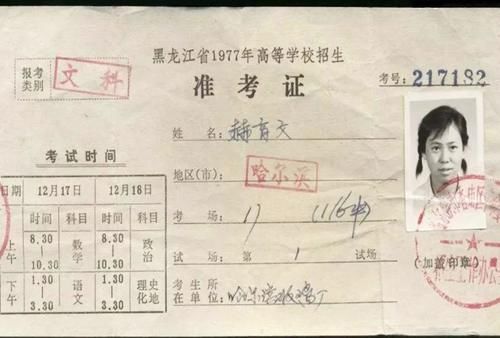 黑龙江省1977年高等学校招生
报考类别
文科
准考证
考号:217182
姓名 赫育文
考试时间
地区(市): 哈尔滨
日期 12月17日 12月18日
时间 科目 时间 科目
上午 8.30—10.30 数学 8.30—10.30 政治
下午 1.30—3.30 语文 1.30—3.30 史地
考场: 17
试场: 第 1 试场
(加盖印章)
考生所在单位: 哈尔滨